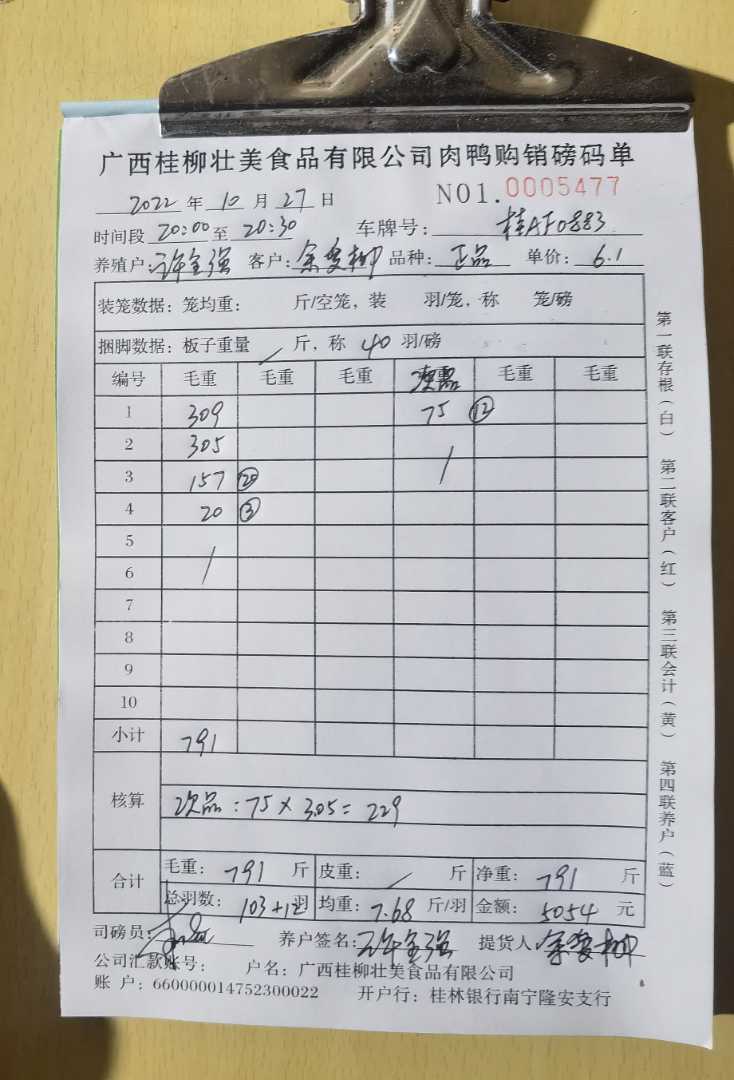 广西桂柳壮美食品有限公司肉鸭购销磅码单
2022 年 10 月 27 日 NO1.0005477
时间段 20:00 至 20:30 车牌号: 桂AF0883
养殖户: 许全强 客户: 余 柳 品种: 正品 单价: 6.1
装笼数据: 笼均重: 斤/空笼, 装 羽/笼, 称 笼/磅
捆脚数据: 板子重量 / 斤, 称 40 羽/磅
编号 毛重 毛重 毛重 毛重 毛重
1 309 75 ⑫
2 305
3 157 ⑳ /
4 20 ③
5
6 /
7
8
9
10
小计 791
核算 次品: 75 × 3.05 = 229
合计 毛重: 791 斤 皮重: / 斤 净重: 791 斤
总羽数: 103+12 羽 均重: 7.68 斤/羽 金额: 5054 元
司磅员: 养户签名: 许全强 提货人: 余 柳
公司汇款账号: 户名: 广西桂柳壮美食品有限公司
账 户: 660000014752300022 开户行: 桂林银行南宁隆安支行
第一联存根(白) 第二联客户(红) 第三联会计(黄) 第四联养户(蓝)